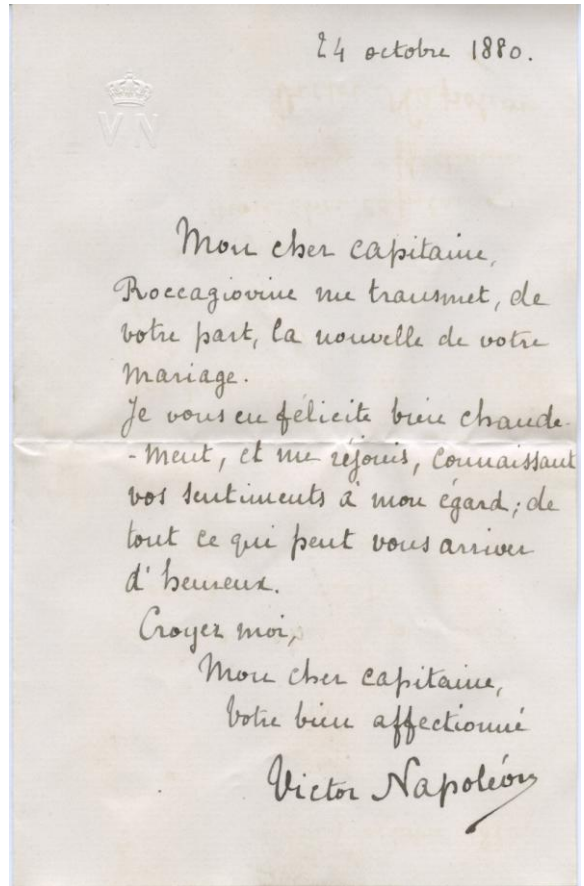 24 octobre 1880.
VN
Mon cher capitaine,
Roccagiovine me transmet, de
votre part, la nouvelle de votre
mariage.
Je vous en félicite bien chaude-
-ment, et me réjouis, connaissant
vos sentiments à mon égard; de
tout ce qui peut vous arriver
d'heureux.
Croyez moi,
Mon cher capitaine,
Votre bien affectionné
Victor Napoléon